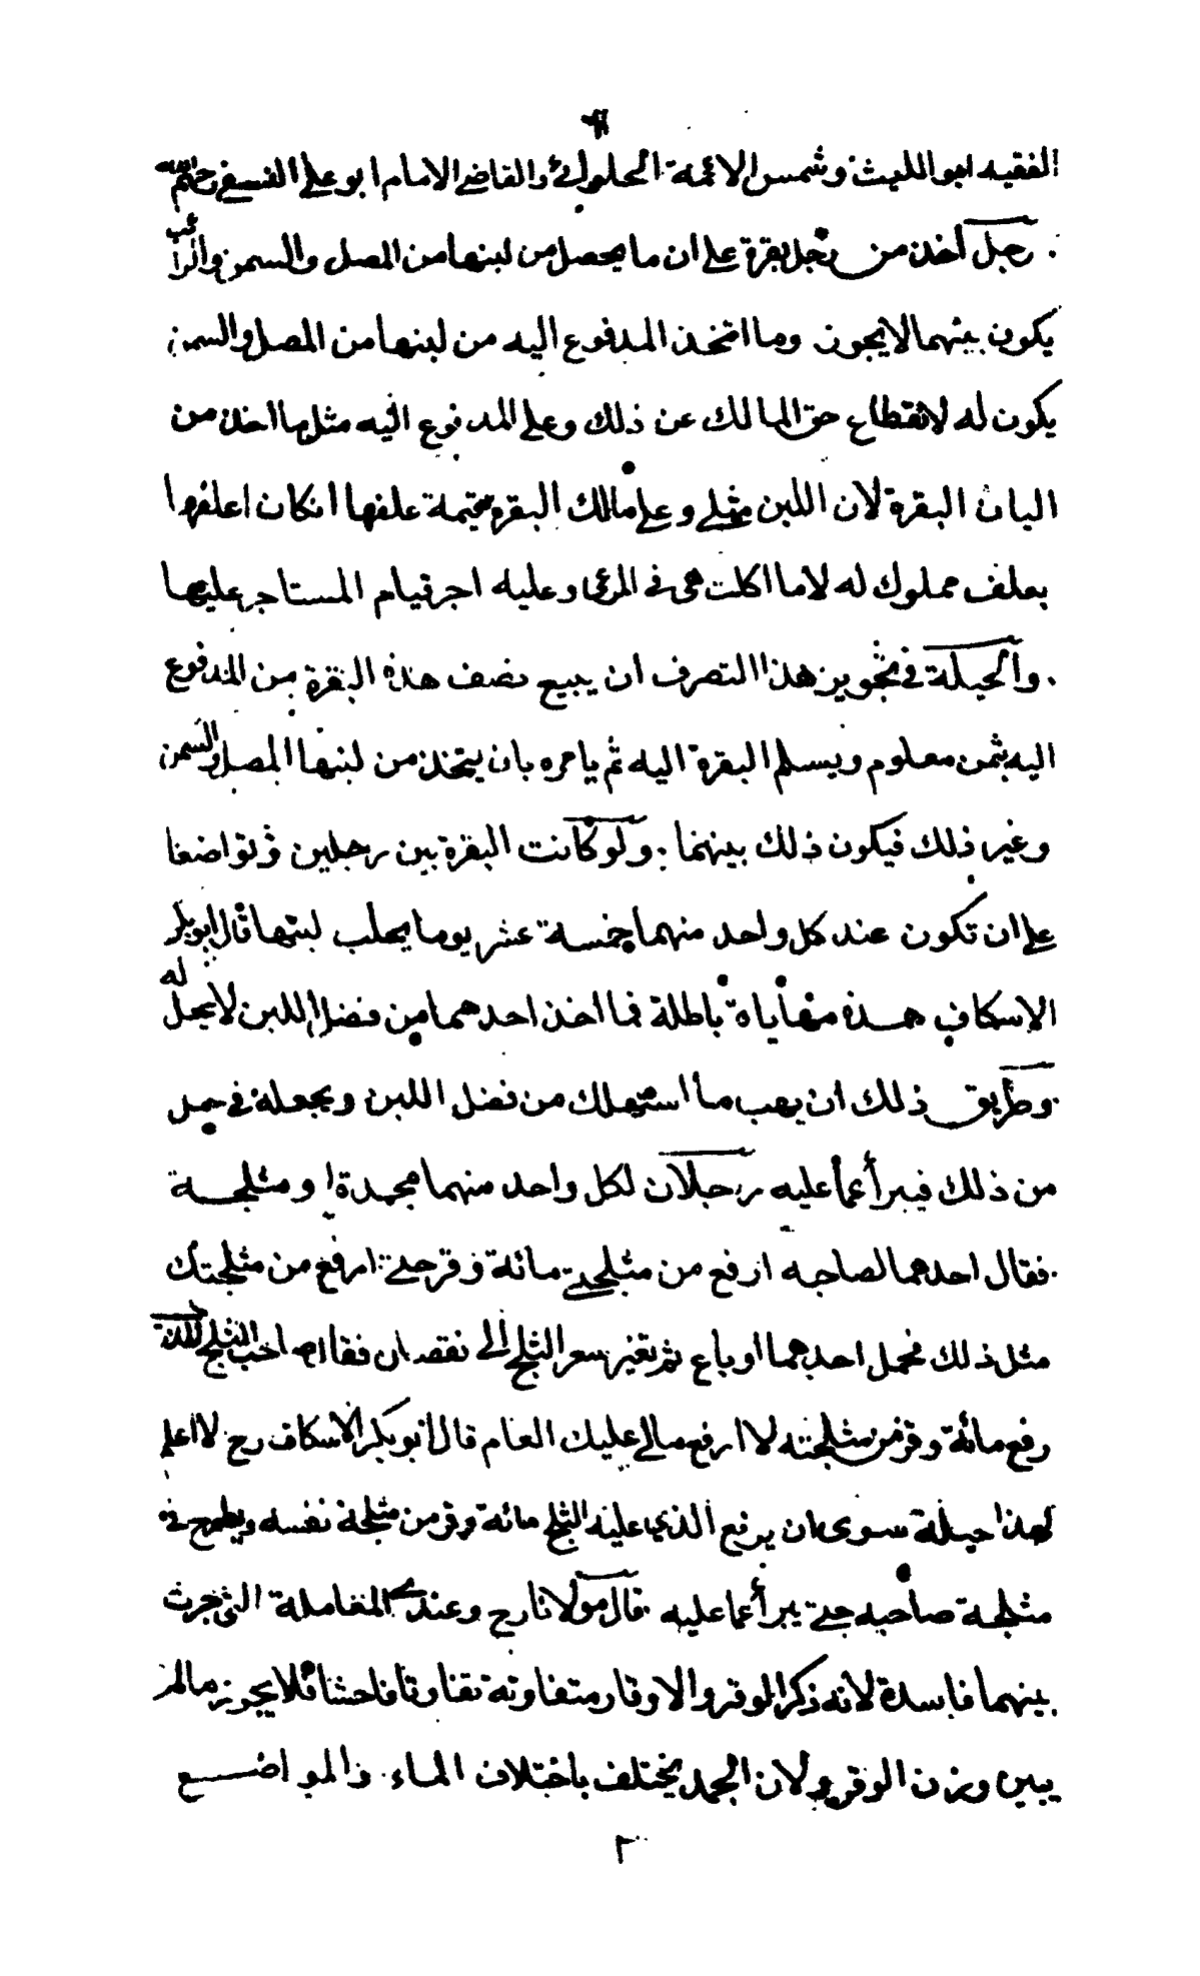 الفقيه ابو الليث وشمس الائمة الحلوائي والقاضي الامام ابو علي النسفي رحمهم الله
رجل اخذ من رجل بقرة على ان ما يحصل من لبنها من المصل والسمن والرائب
يكون بينهما لا يجوز وما اتخذ المدفوع اليه من لبنها من المصل والسمن
يكون له لانقطاع حق المالك عن ذلك وعلى المدفوع اليه مثل ما اخذ من
البان البقرة لان اللبن مثلي وعلى مالك البقرة قيمة علفها انكان اعلفها
بعلف مملوك له لا ما اكلت هي في المرعى وعليه اجر قيام المستاجر عليها
والحيلة في تجويز هذا التصرف ان يبيع نصف هذه البقرة من المدفوع
اليه بثمن معلوم ويسلم البقرة اليه ثم يامره بان يتخذ من لبنها المصل والسمن
وغير ذلك فيكون ذلك بينهما ولو كانت البقرة بين رجلين وتواضعا
على ان تكون عند كل واحد منهما خمسة عشر يوما يحلب لبنها قال ابو بكر
الاسكاف هذه مهاياة باطلة فما اخذ احدهما من فضل اللبن لا يحل له
وطريق ذلك ان يهب ما استهلك من فضل اللبن ويجعله في حل
من ذلك فيبرأ عما عليه رجلان لكل واحد منهما مجمدة او مثلجة
فقال احدهما لصاحبه ارفع من مثلجتي مائة وقر حتى ارفع من مثلجتك
مثل ذلك فحمل احدهما او باع ثم تغير سعر الثلج الى نقصان فقال صاحب الثلج للذي
رفع مائة وقر من مثلجته لا ارفع مالي عليك العام قال ابو بكر الاسكاف رح لا اعلم
لهذا حيلة سوى ان يرفع الذي عليه الثلج مائة وقر من مثلجة نفسه ويطرح في
مثلجة صاحبه حتى يبرأ عما عليه قال مولانا رح وعندي المعاملة التي جرت
بينهما فاسدة لانه ذكر الوقر والاوقار متفاوتة تفاوتا فاحشا فلا يجوز ما لم
يبين وزن الوقر ولان الجمد يختلف باختلاف الماء والمواضع
٢